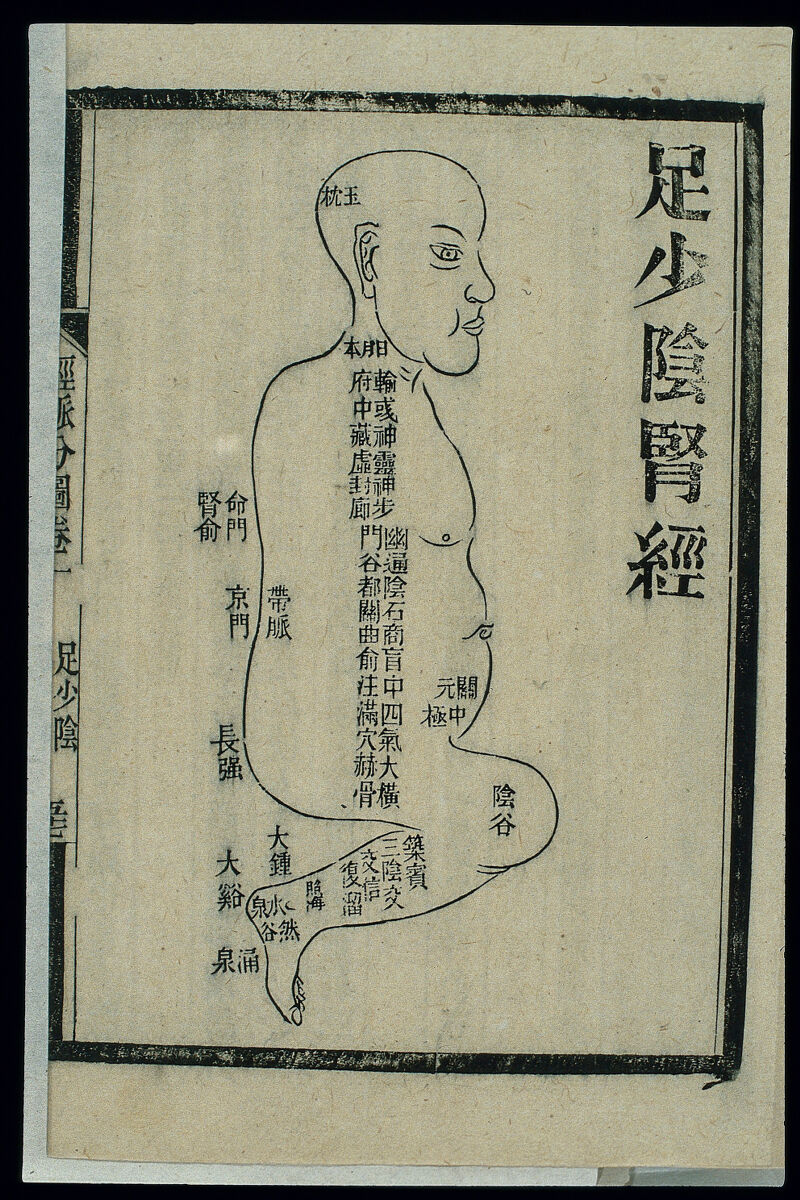 足少陰腎經
玉枕
日月本
輸或神靈神步
府中藏虛封廊
幽通陰石商肓中四氣大橫
門谷都關曲俞注滿穴赫骨
命門
腎俞
京門
帶脈
關元
中極
長强
陰谷
築賓
三陰交
交信
復溜
照海
大鍾
大谿
水泉
然谷
涌泉
經脈分圖卷一
足少陰